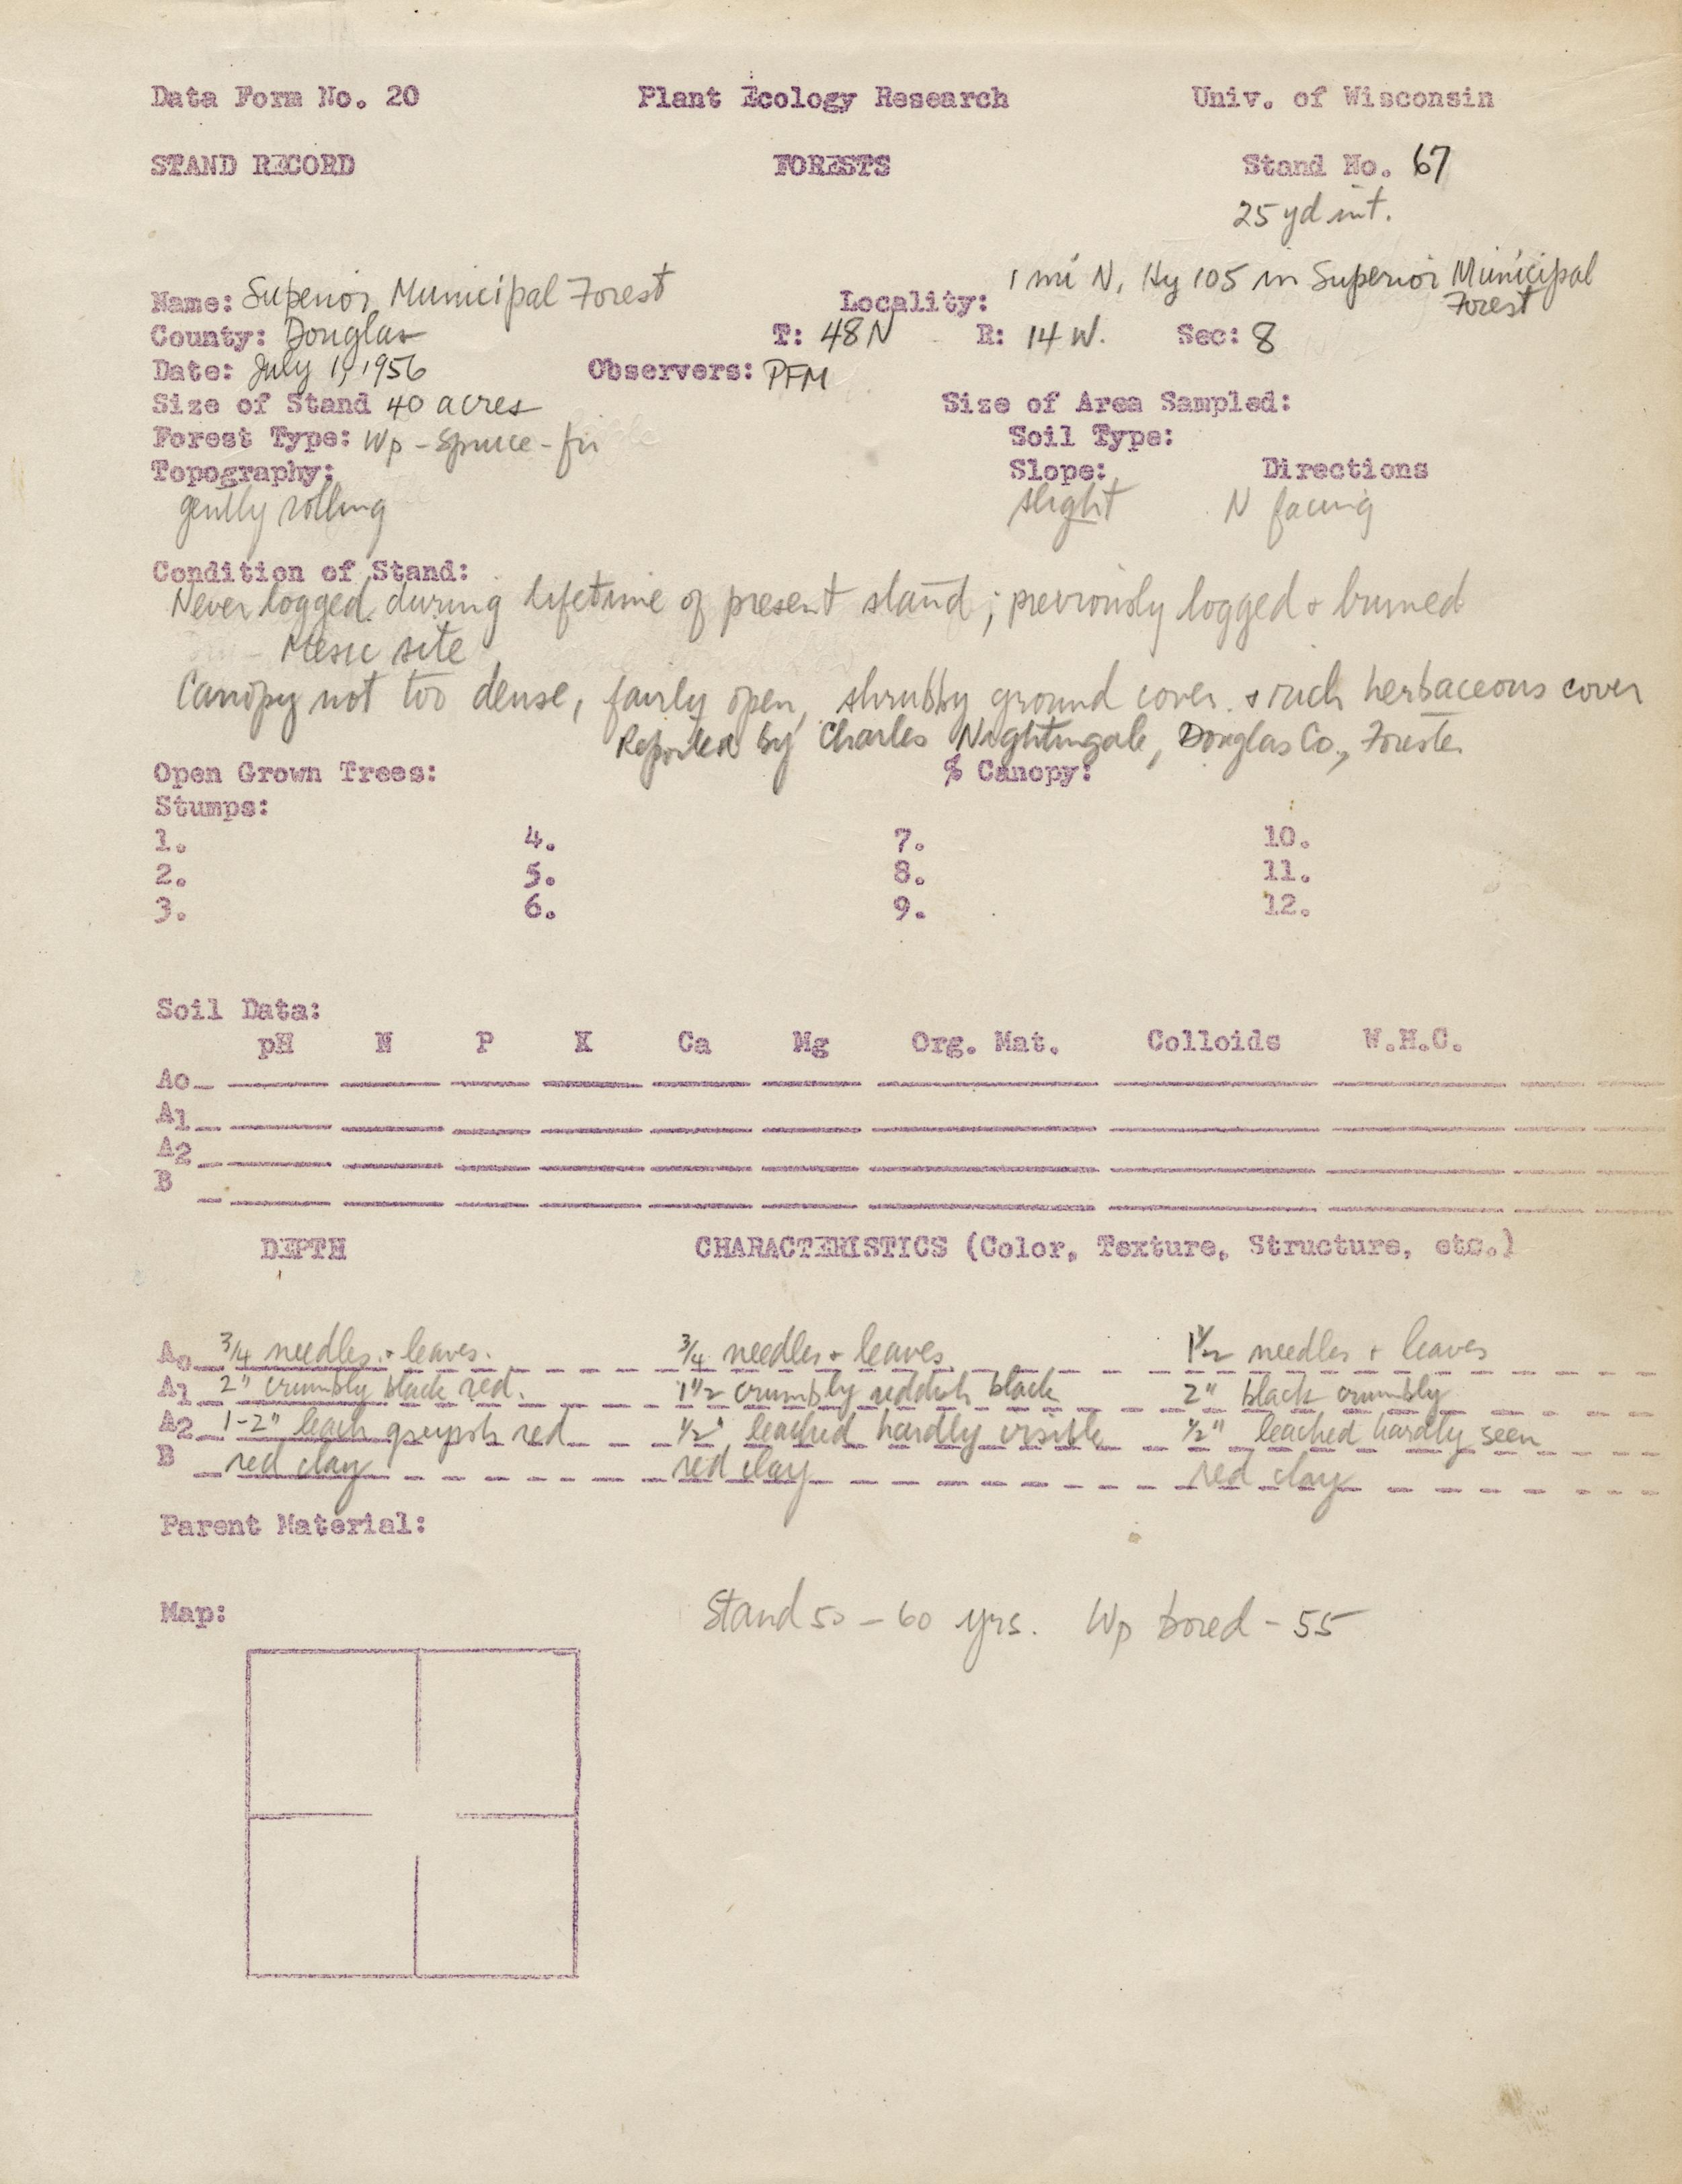 Data Form No. 20 Plant Ecology Research Univ. of Wisconsin
STAND RECORD FORESTS Stand No. 67
25 yd int.
Name: Superior Municipal Forest Locality: 1 mi N, Hy 105 in Superior Municipal Forest
County: Douglas T: 48N R: 14 W. Sec: 8
Date: July 1, 1956 Observers: PFM
Size of Stand 40 acres Size of Area Sampled:
Forest Type: Wp - Spruce - fir Soil Type:
Topography: Slope: Directions
gently rolling slight N facing
Condition of Stand:
Never logged during lifetime of present stand; previously logged + burned
- Mesic site
Canopy not too dense, fairly open, shrubby ground cover + rich herbaceous cover
Reported by Charles Nightingale, Douglas Co., Forester
Open Grown Trees: % Canopy:
Stumps:
1. 4. 7. 10.
2. 5. 8. 11.
3. 6. 9. 12.
Soil Data:
pH N P K Ca Mg Org. Mat. Colloids W.H.C.
Ao
A1
A2
B
DEPTH CHARACTERISTICS (Color, Texture, Structure, etc.)
Ao 3/4 needles + leaves. 3/4 needles + leaves 1 1/2 needles + leaves
A1 2" crumbly black red. 1 1/2 crumbly reddish black 2" black crumbly
A2 1-2" leach greyish red 1/2" leached hardly visible 1/2" leached hardly seen
B red clay red clay red clay
Parent Material:
Map: Stand 50 - 60 yrs. Wp bored - 55